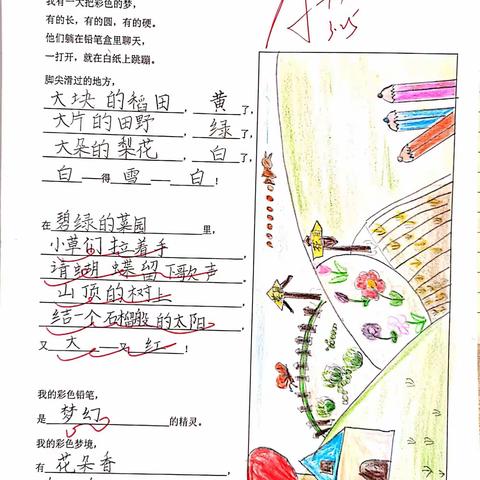 我有一大把彩色的梦,
有的长,有的圆,有的硬。
他们躺在铅笔盒里聊天,
一打开,就在白纸上跳蹦。
脚尖滑过的地方,
大块的稻田,黄了,
大片的田野,绿了,
大朵的梨花,白了,
白——得雪——白!
在碧绿的菜园里,
小草们拉着手
请蝴蝶留下歌声
山顶的树上
结一个石榴般的太阳
又大——又红!
我的彩色铅笔,
是梦幻的精灵。
我的彩色梦境,
有花朵香